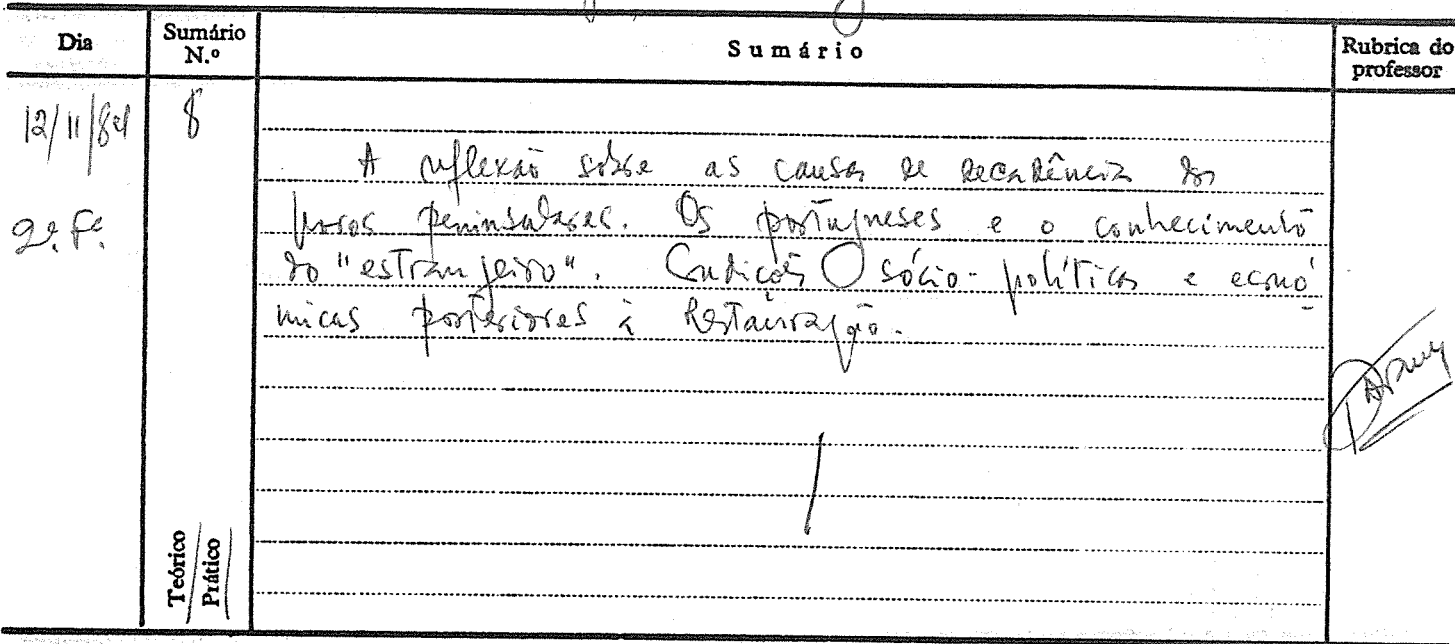 Dia Sumário N.º Sumário Rubrica do professor
12/11/84 8
A reflexão sobre as causas de decadência dos
2ª Fª povos peninsulares. Os portugueses e o conhecimento
do "estrangeiro". Condições sócio-políticas e econó-
micas posteriores à Restauração.
Teórico
Prático